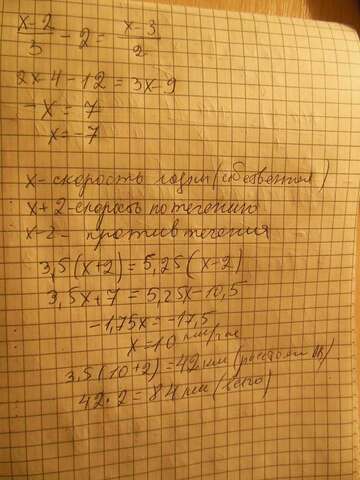 x-2/3 - 2 = x-3/2
2x-4-12=3x-9
-x=7
x=-7
x-скорость лодки (собственная)
x+2-скорость по течению
x-2- против течения
3,5(x+2)=5,25(x-2)
3,5x+7=5,25x-10,5
-1,75x=-17,5
x=10 км/час
3,5(10+2)=42 км (расстоян)
42·2=84 км (всего)